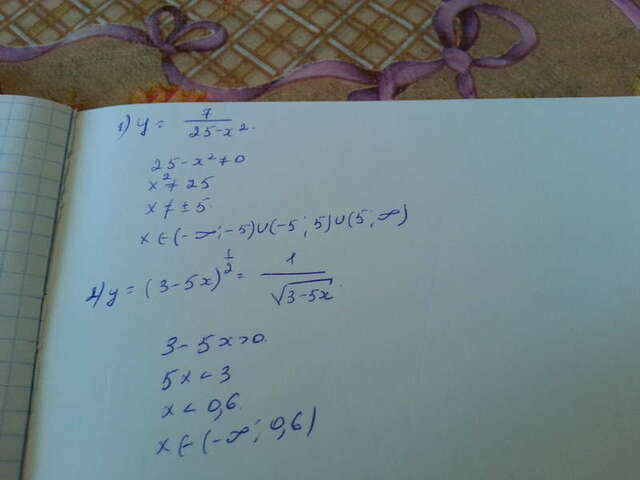 1) y = 7/(25-x².)
25-x²≠0
x²≠25
x≠±5.
x∈(-∞;-5)∪(-5;5)∪(5;∞)
2) y = (3-5x)^(1/2) = 1/√(3-5x).
3-5x>0.
5x<3
x<0,6.
x∈(-∞;0,6)